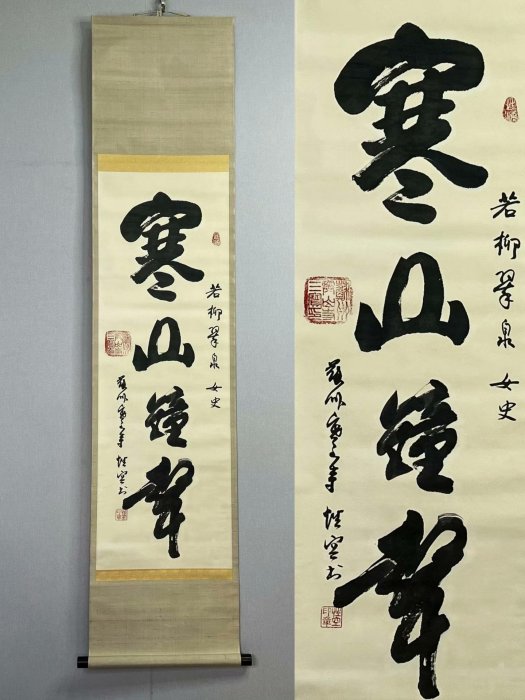 寒山鐘聲
若柳翠泉女史
蘇州寒山寺 性空书